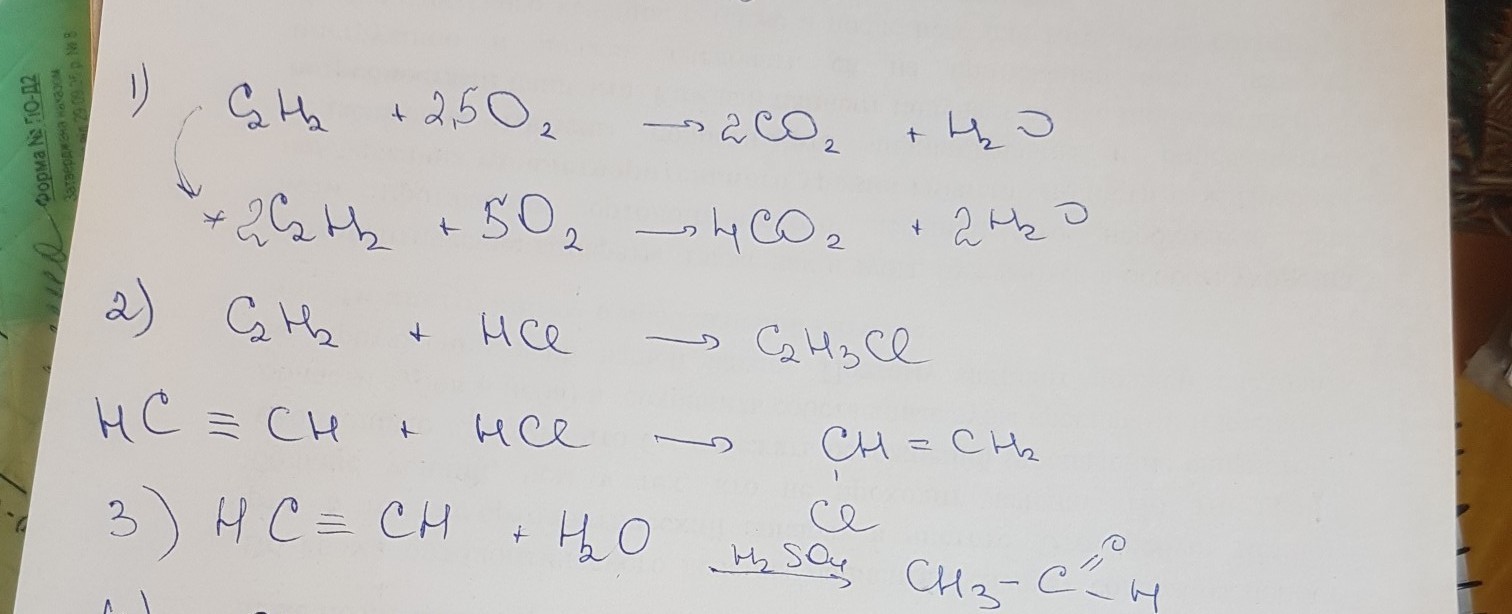 Форма № П10-Д2
1) C₂H₂ + 2,5O₂ → 2CO₂ + H₂O
* 2C₂H₂ + 5O₂ → 4CO₂ + 2H₂O
2) C₂H₂ + HCl → C₂H₃Cl
HC ≡ CH + HCl → CH = CH₂
Cl
3) HC ≡ CH + H₂O
H₂SO₄
→ CH₃ - C
O
H